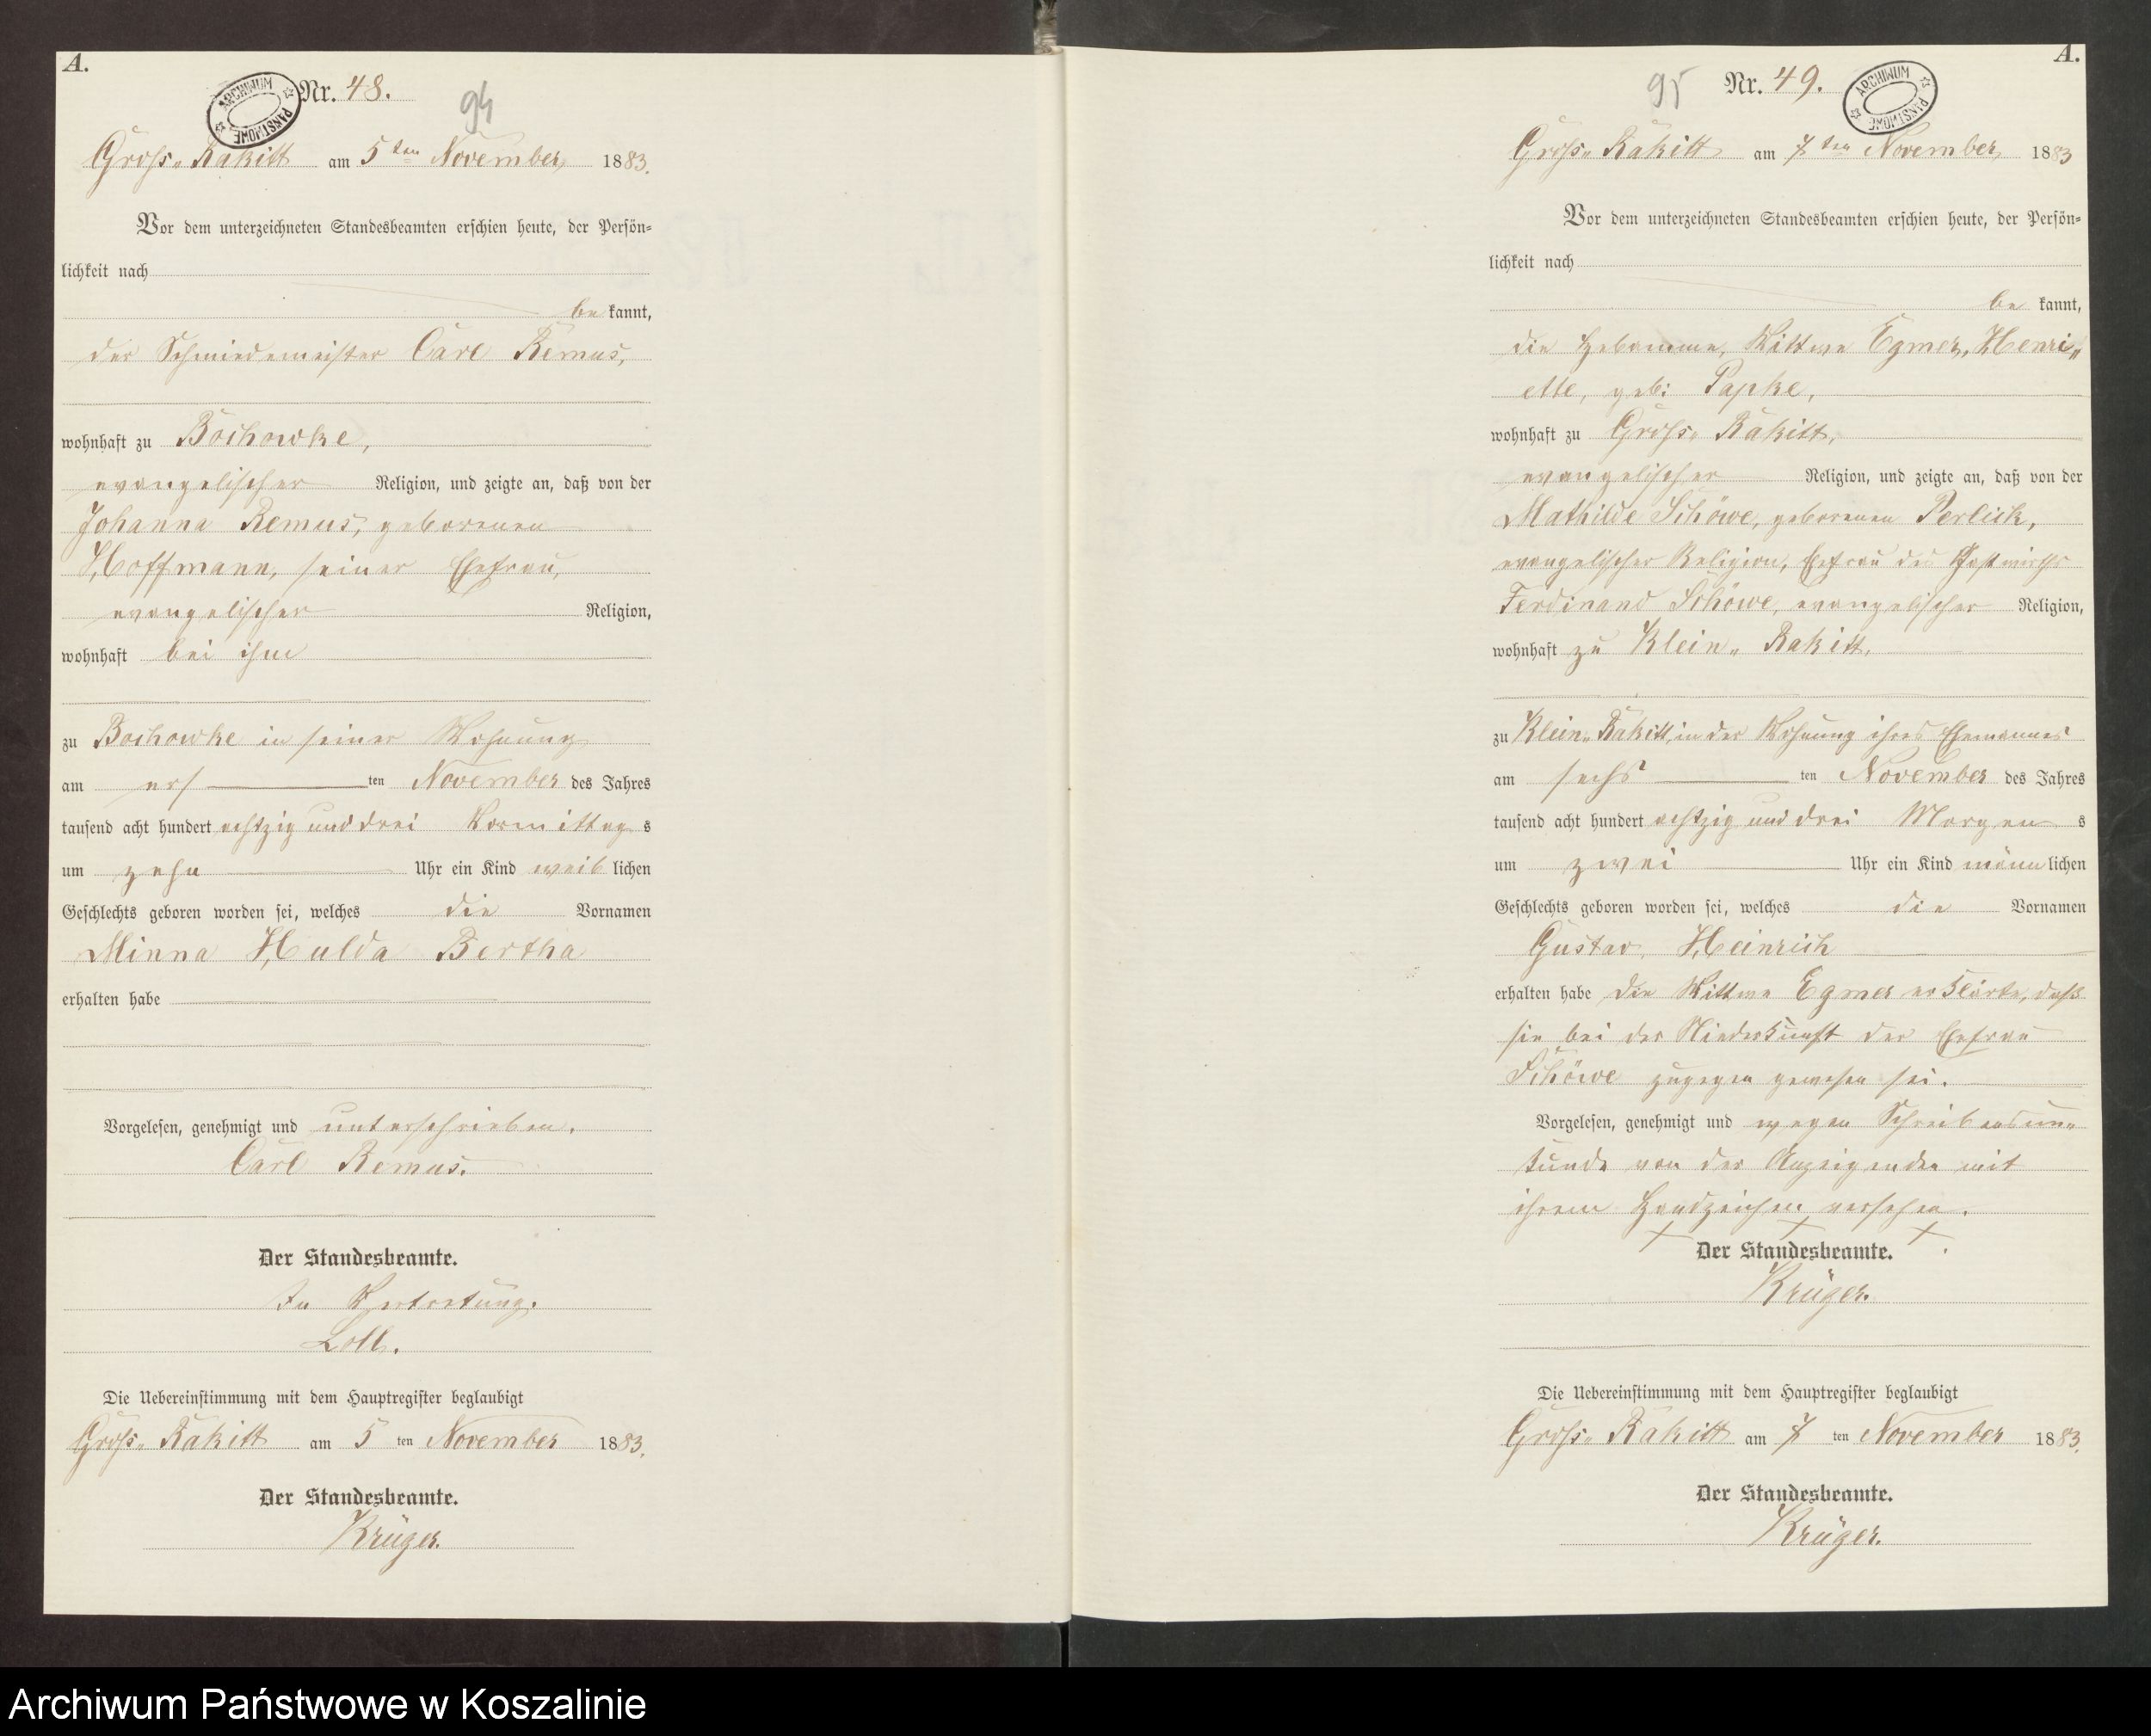 A.
Nr. 48.
94
ARCHIWUM PAŃSTWOWE
Gross-Rakitt am 5ten November 1883.
Vor dem unterzeichneten Standesbeamten erschien heute, der Persön-
lichkeit nach
be kannt,
der Schmiedemeister Carl Remus,
wohnhaft zu Bochowke,
evangelischer Religion, und zeigte an, daß von der
Johanna Remus, geborenen
Hoffmann, seiner Ehefrau,
evangelischer Religion,
wohnhaft bei ihm
zu Bochowke in seiner Wohnung
am ers ten November des Jahres
tausend acht hundert achtzig und drei Vormittag s
um zehn Uhr ein Kind weib lichen
Geschlechts geboren worden sei, welches die Vornamen
Minna Hulda Bertha
erhalten habe
Vorgelesen, genehmigt und unterschrieben.
Carl Remus.
Der Standesbeamte.
In Vertretung.
Loll.
Die Uebereinstimmung mit dem Hauptregister beglaubigt
Gross-Rakitt am 5 ten November 1883.
Der Standesbeamte.
Krüger.
A.
95
Nr. 49.
ARCHIWUM PAŃSTWOWE
Gross-Rakitt am 7ten November 1883
Vor dem unterzeichneten Standesbeamten erschien heute, der Persön-
lichkeit nach
be kannt,
die Hebamme, Wittwe Egmer, Henri-
ette, geb: Papke,
wohnhaft zu Gross-Rakitt,
evangelischer Religion, und zeigte an, daß von der
Mathilde Schöwe, geborenen Perlick,
evangelischer Religion, Ehefrau des Gastwirths
Ferdinand Schöwe, evangelischer Religion,
wohnhaft zu Klein-Rakitt,
zu Klein-Rakitt, in der Wohnung ihres Ehemannes
am sechs ten November des Jahres
tausend acht hundert achtzig und drei Morgen s
um zwei Uhr ein Kind männ lichen
Geschlechts geboren worden sei, welches die Vornamen
Gustav, Heinrich
erhalten habe die Wittwe Egmer erklärte, daß
sie bei der Niederkunft der Ehefrau
Schöwe zugegen gewesen sei.
Vorgelesen, genehmigt und wegen Schreibensun-
kunde von der Anzeigenden mit
ihrem Handzeichen versehen.
+ + +
Der Standesbeamte.
Krüger.
Die Uebereinstimmung mit dem Hauptregister beglaubigt
Gross-Rakitt am 7 ten November 1883.
Der Standesbeamte.
Krüger.
Archiwum Państwowe w Koszalinie